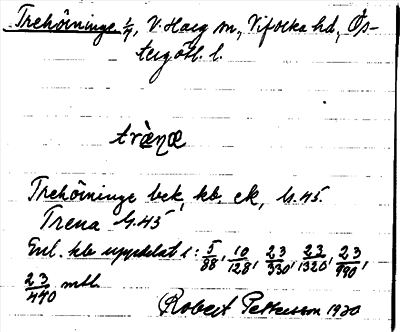 Trehörninge 1/4, V. Harg sn, Vifolka hd, Ös-
tergötl. l.
træ̀næ
Trehörninge bek, kb. ek, h. 45.
Trena h. 45
Enl. kb uppdelat i: 5/88, 10/128, 23/330, 23/1320, 23/990,
23/440 mtl.
Robert Pettersson 1920